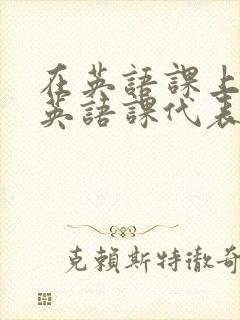 在英語課上
英語課代表
克賴斯特徹奇